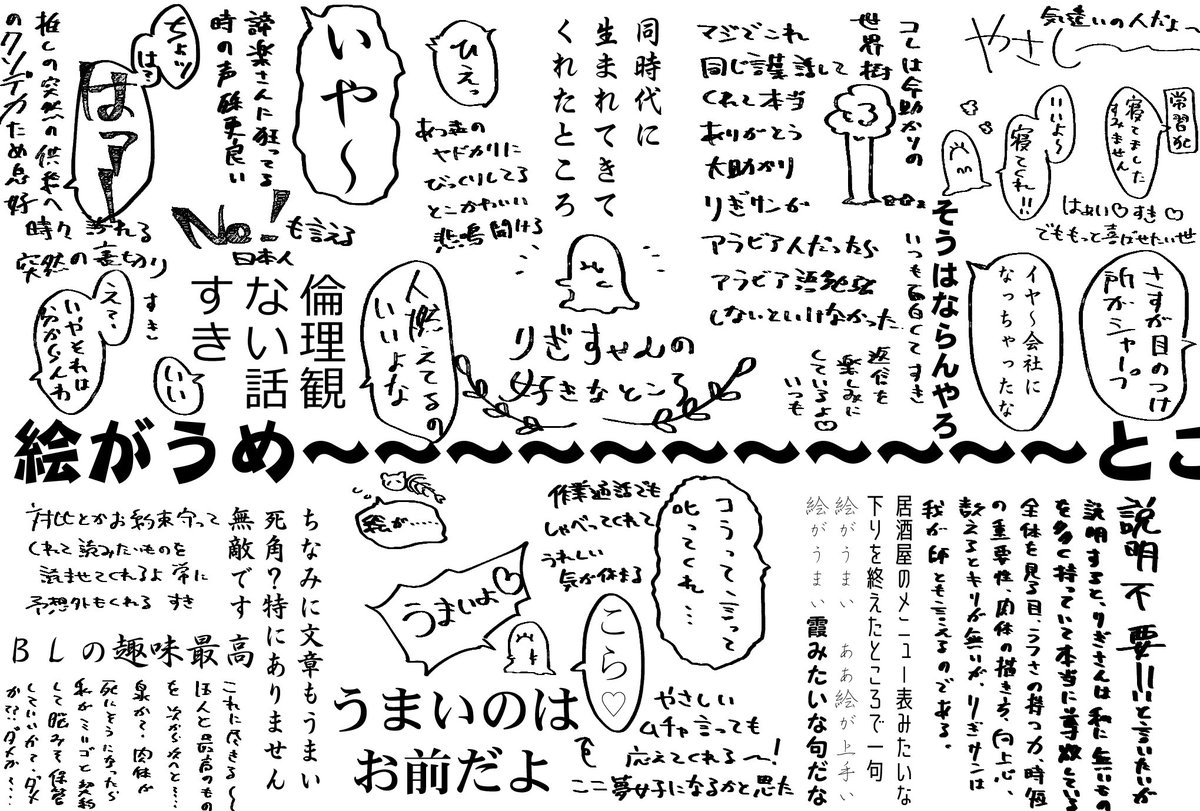 気遣いの人だよっ
やさし〜
常習犯
寝てました
すみません
いいよ〜
寝てくれ!!
はぁい♡すき♡
でももっと喜ばせたい世
さすが目のつけ
所がシャープ
イヤ〜会社に
なっちゃったな
そうはならんやろ
いつも面白くてすき
コレは今助かりの
世界樹
マジでこれ
同じ言語話して
くれて本当
ありがとう
大助かり
りぎサンが
アラビア人だったら
アラビア語勉強
しないといけなかった
返信を
楽しみに
しているよ♡
いつも
同時代に
生まれてきて
くれたところ
ひえっ
ヤドカリに
びっくりしてる
とこかわいい
悲鳴聞ける
いや〜
諦楽さんに狂ってる
時の声
良い
ちょッ
は?
はァー
推しの突然の供給へ
のクソデカため息好
時々
突然の裏切り
No!
も言える
日本人
すき
えて、
いやそれは
分からんわ
いい
倫理観
ない話
すき
人燃えてるの
いいよな
りぎすゃんの
好きなところ
絵がうめ〜〜〜〜〜〜〜〜〜〜〜とこ
説明不要!!と言いたいが
説明すると、りぎさんは私に無いもの
を多く持っていて本当に尊敬している
全体を見る目、うつさの持つ力、時短
の重要性、肉体の描き方、向上心、
数えるとキリが無いが、りぎサンは
我が師とも言えるのである。
居酒屋のメニュー表みたいな
下りを終えたところで一句
絵がうまい ああ絵が上手い
絵がうまい霞みたいな句だな
コラって言って
叱ってくれ…
こら♡
作業通話でも
しゃべってくれて
うれしい
気が休まる
やさしい
ムチャ言っても
応えてくれる〜!
ここ夢女子になるかと思た
絵が……
うまいよ♡
うまいのは
お前だよ
ちなみに文章もうまい
死角?特にありません
無敵です
対比とかお約束守って
くれて読みたいものを
読ませてくれるよ 常に
予想外もくれる すき
BLの趣味最高
これに尽きる〜
ほんと最高のもの
を次から次へと……
臭かて、肉体が
死にそうになったら